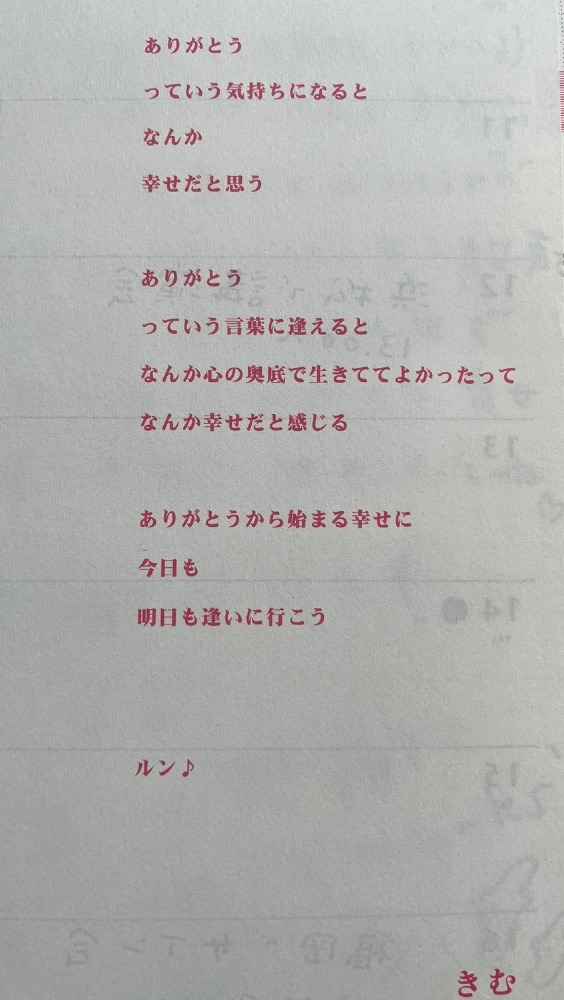 ありがとう
っていう気持ちになると
なんか
幸せだと思う
ありがとう
っていう言葉に逢えると
なんか心の奥底で生きててよかったって
なんか幸せだと感じる
ありがとうから始まる幸せに
今日も
明日も逢いに行こう
ルン♪
きむ
11
12
13:00
13
14
15
16
福岡 サイン会